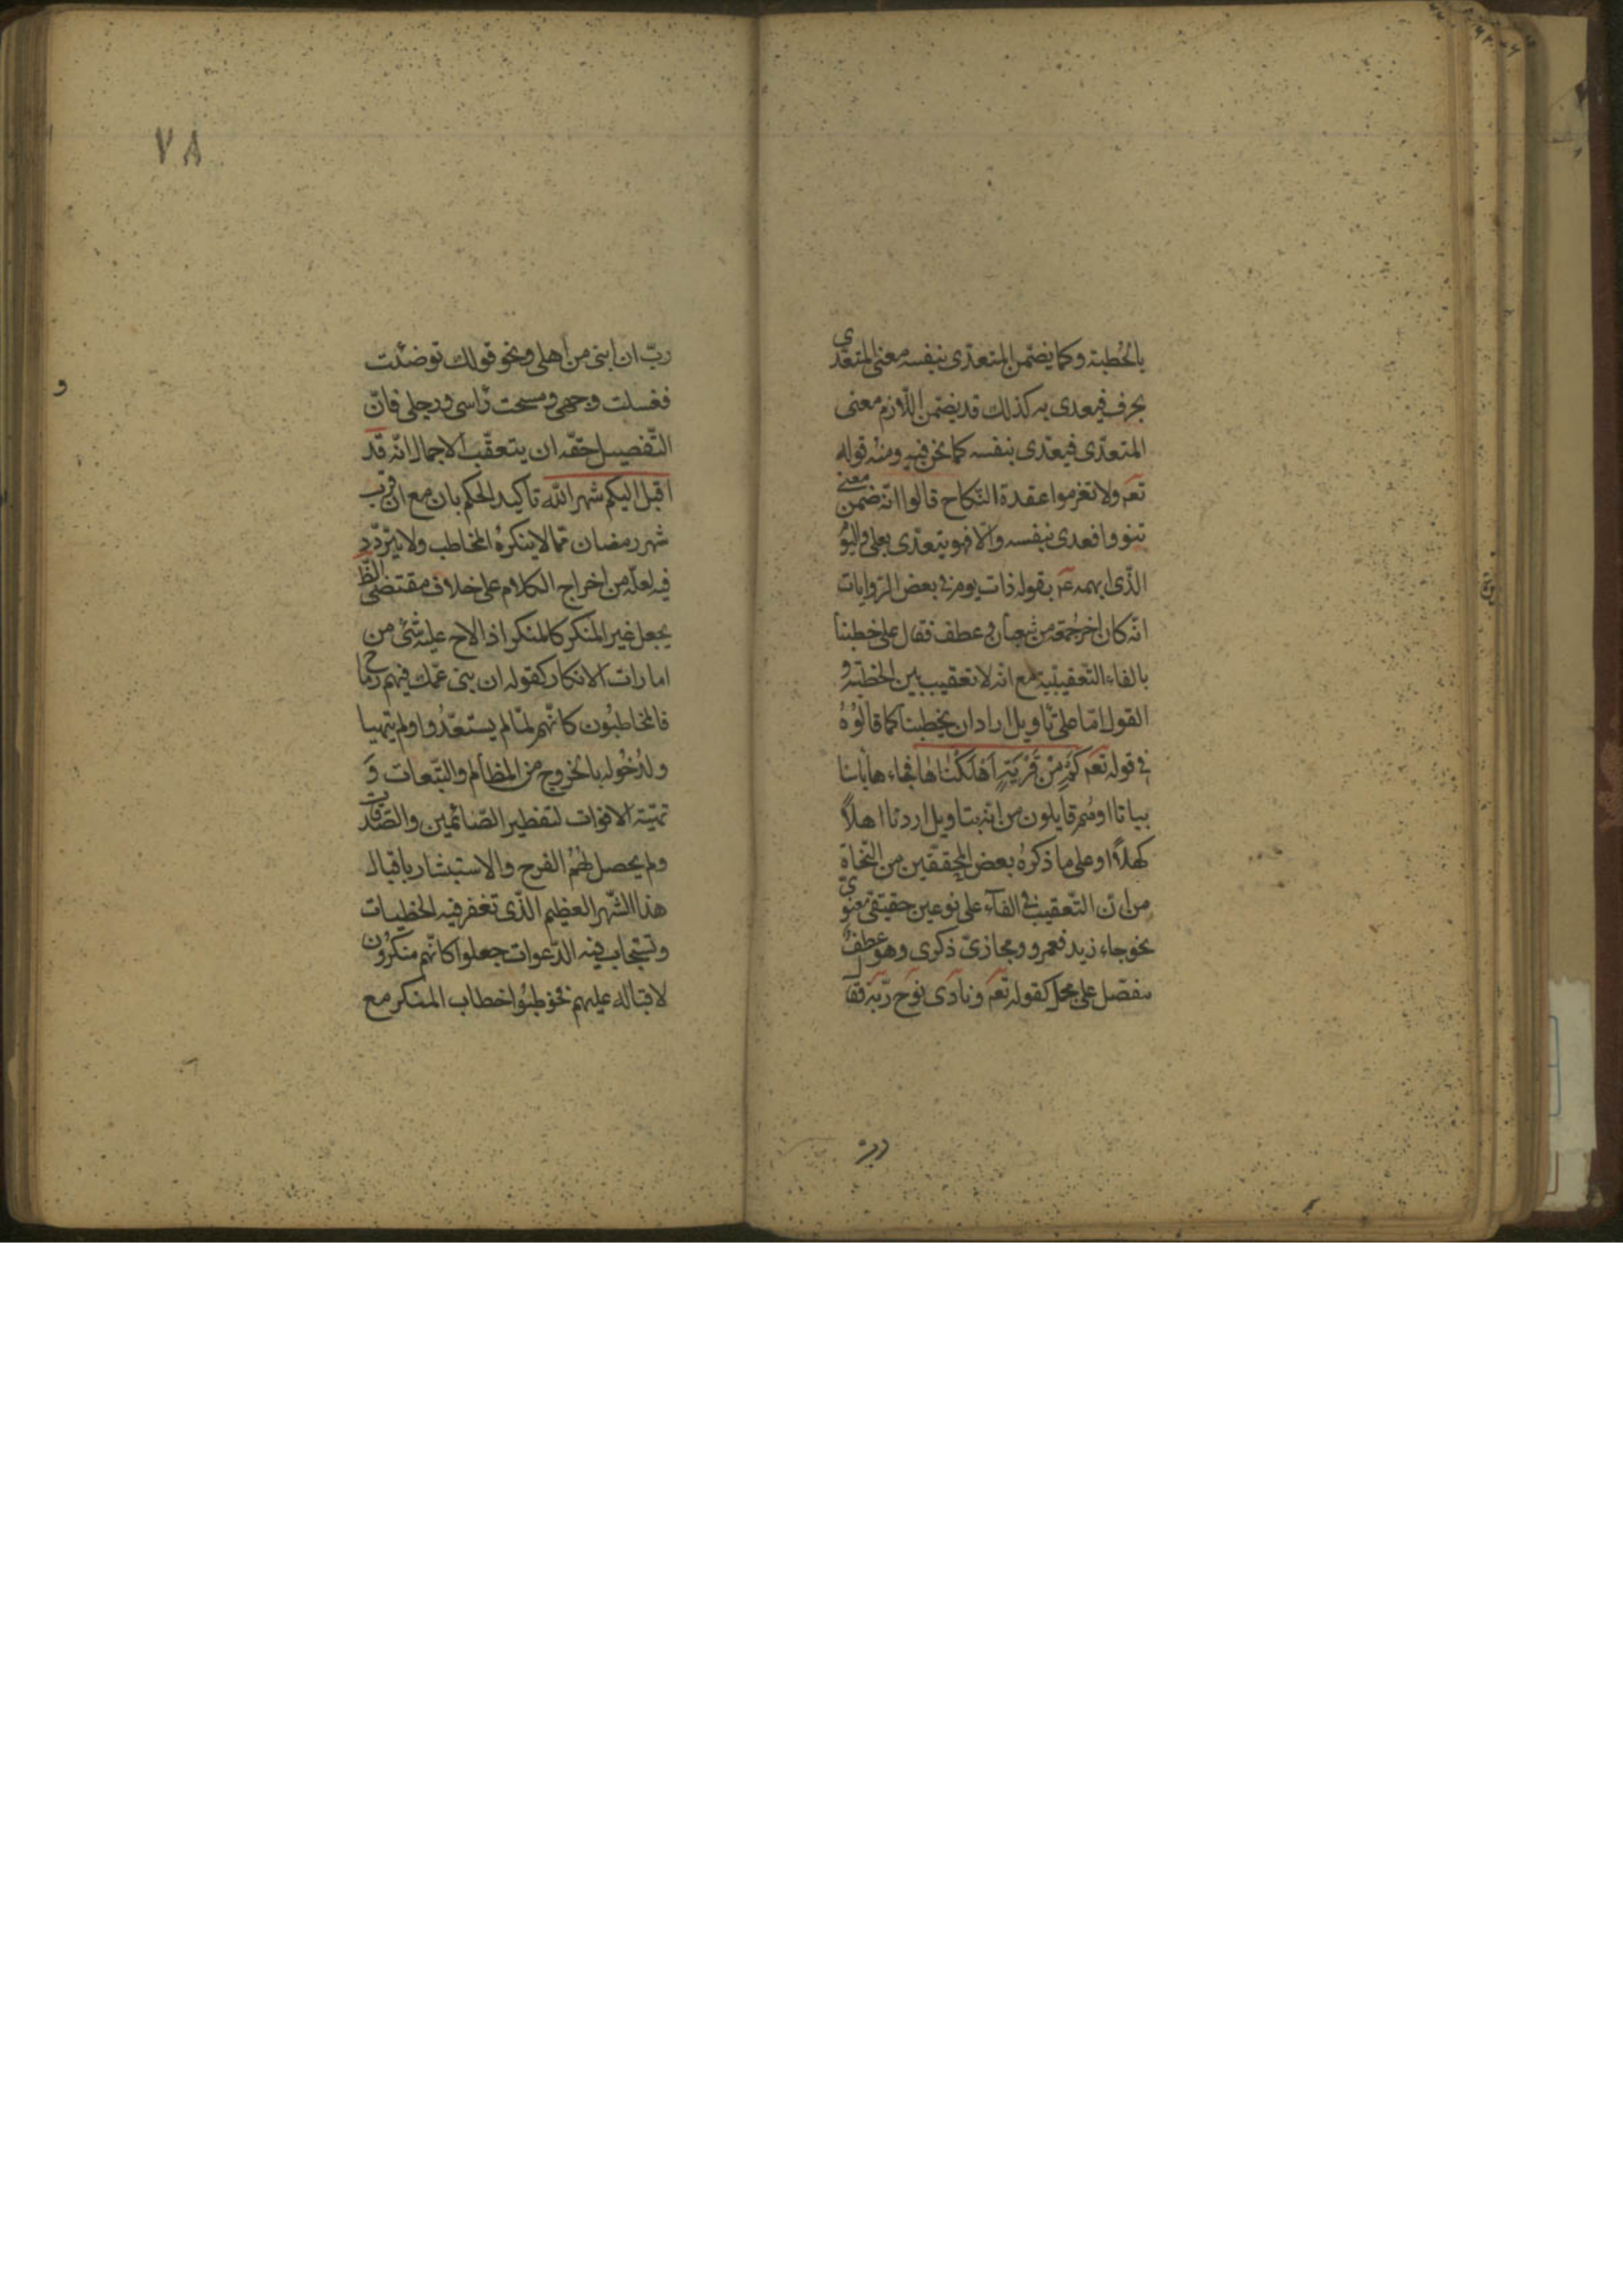 بالخُطبة وكما يضمّن المتعدّى بنفسه معنى المتعدّى
بحرف فيعدى به كذلك قد يضمّن اللّازم معنى
المتعدّى فيعدّى بنفسه كما نحن فيه ومنه قوله
تعم ولا تعزموا عقدة النّكاح قالوا انّه ضمّن معنى
تنووا فعدى بنفسه والّا فهو يتعدّى بعلى واليوم
الّذى ابهمه عم بقوله ذات يوم فى بعض الرّوايات
انّه كان اخر جُمعة من شعبان وعطف فقال على خطبنا
بالفاء التّعقيبيّة مع انّه لا تعقيب بين الخطبة و
القول امّا على تاويل اراد ان يخطبنا كما قالُوُهُ
فى قوله تعم كَمْ مِنْ قَرْيَةٍ اَهْلَكْناها فجاءها بأسنا
بياتا او هُم قايلون من انّه بتاويل اردنا اهلاكها
كهلاً او على ما ذكرهُ بعض المحققين من النّحاة
من انّ التّعقيب فى الفآء على نوعين حقيقى معنوىّ
نحو جاء زيد فعمرو ومجازىّ ذكرى وهو عطفُ
مفصّل على مجمل كقوله تعم ونادى نوح ربّه فقال
ربّ
٧٨
ربّ ان ابنى من اهلى ونحو قولك توضّئت
فغسلت وجهى ومسحت رّاسى ورجلى فانّ
التّفصيل حقّه ان يتعقّب الاجمال انّه قد
اقبل اليكم شهر اللّه تاكيد الحكم بان مع ان قرب
شهر رمضان ممّا لا ينكرهُ المخاطب ولا يتردّد
فيه لعلّه من اخراج الكلام على خلاف مقتضى الظّ
بجعل غير المنكر كالمنكر اذا لاح عليه شئ من
امارات الانكار كقوله ان بنى عمّك فيهم رماح
فالمخاطبُون كانّهم لمّا لم يستعدُّوا ولم يتهيا
ولدُخُوله بالخروج من المظالم والتّبعات وَ
تهيّئة الاقوات لتفطير الصّائمين والصّدقات
ولم يحصل لهُمُ الفرح والاستبشار باقبال
هذا الشّهر العظيم الّذى تغفر فيه الخطيات
وتستجاب فيه الدّعوات جعلوا كانّهم منكرُون
لاقباله عليهم فخوطبُوا خطاب المنكر مع
و